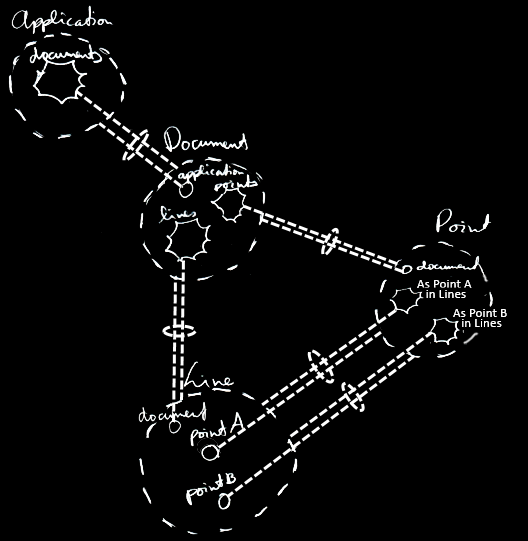 Application
documents
Document
application
points
lines
Point
document
As Point A
in Lines
As Point B
in Lines
Line
document
point A
point B